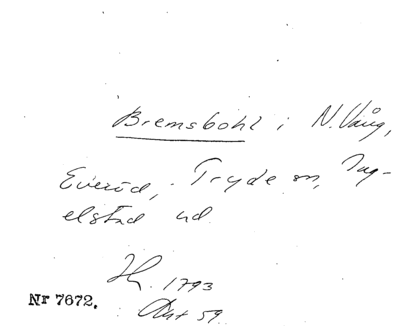 Bremsbohl i N. Vång,
Everöd, Tryde sn, Ing-
elstad hd
Hh. 1793
Akt 59
Nr 7672.